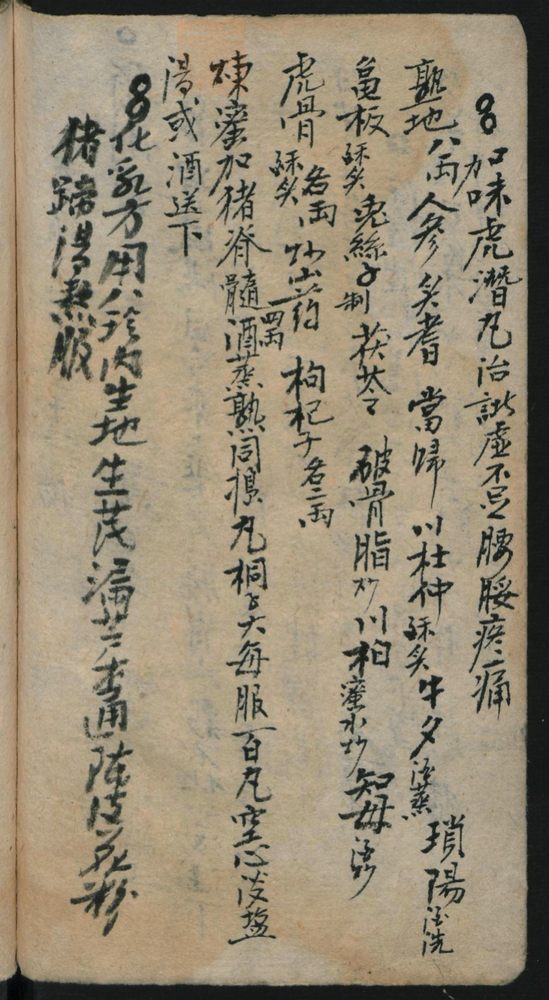 加味虎潛丸治諸虛不足腰腿疼痛
熟地 八兩 人參 炙耆 當歸 川杜仲 酥炙 牛夕 酒蒸 瑣陽 酒洗
龜板 酥炙 兔絲子 制 茯苓 破骨脂 炒 川柏 蜜水炒 知母 酒炒
虎骨 酥炙 各一兩 炒山药 四兩 枸杞子 各二兩
煉蜜加猪脊髓酒蒸熟同搗丸桐子大每服百丸空心淡盐
湯或酒送下
化乳方用八珍內生地生芪漏芦木通陳皮花粉
猪蹄湯煎服